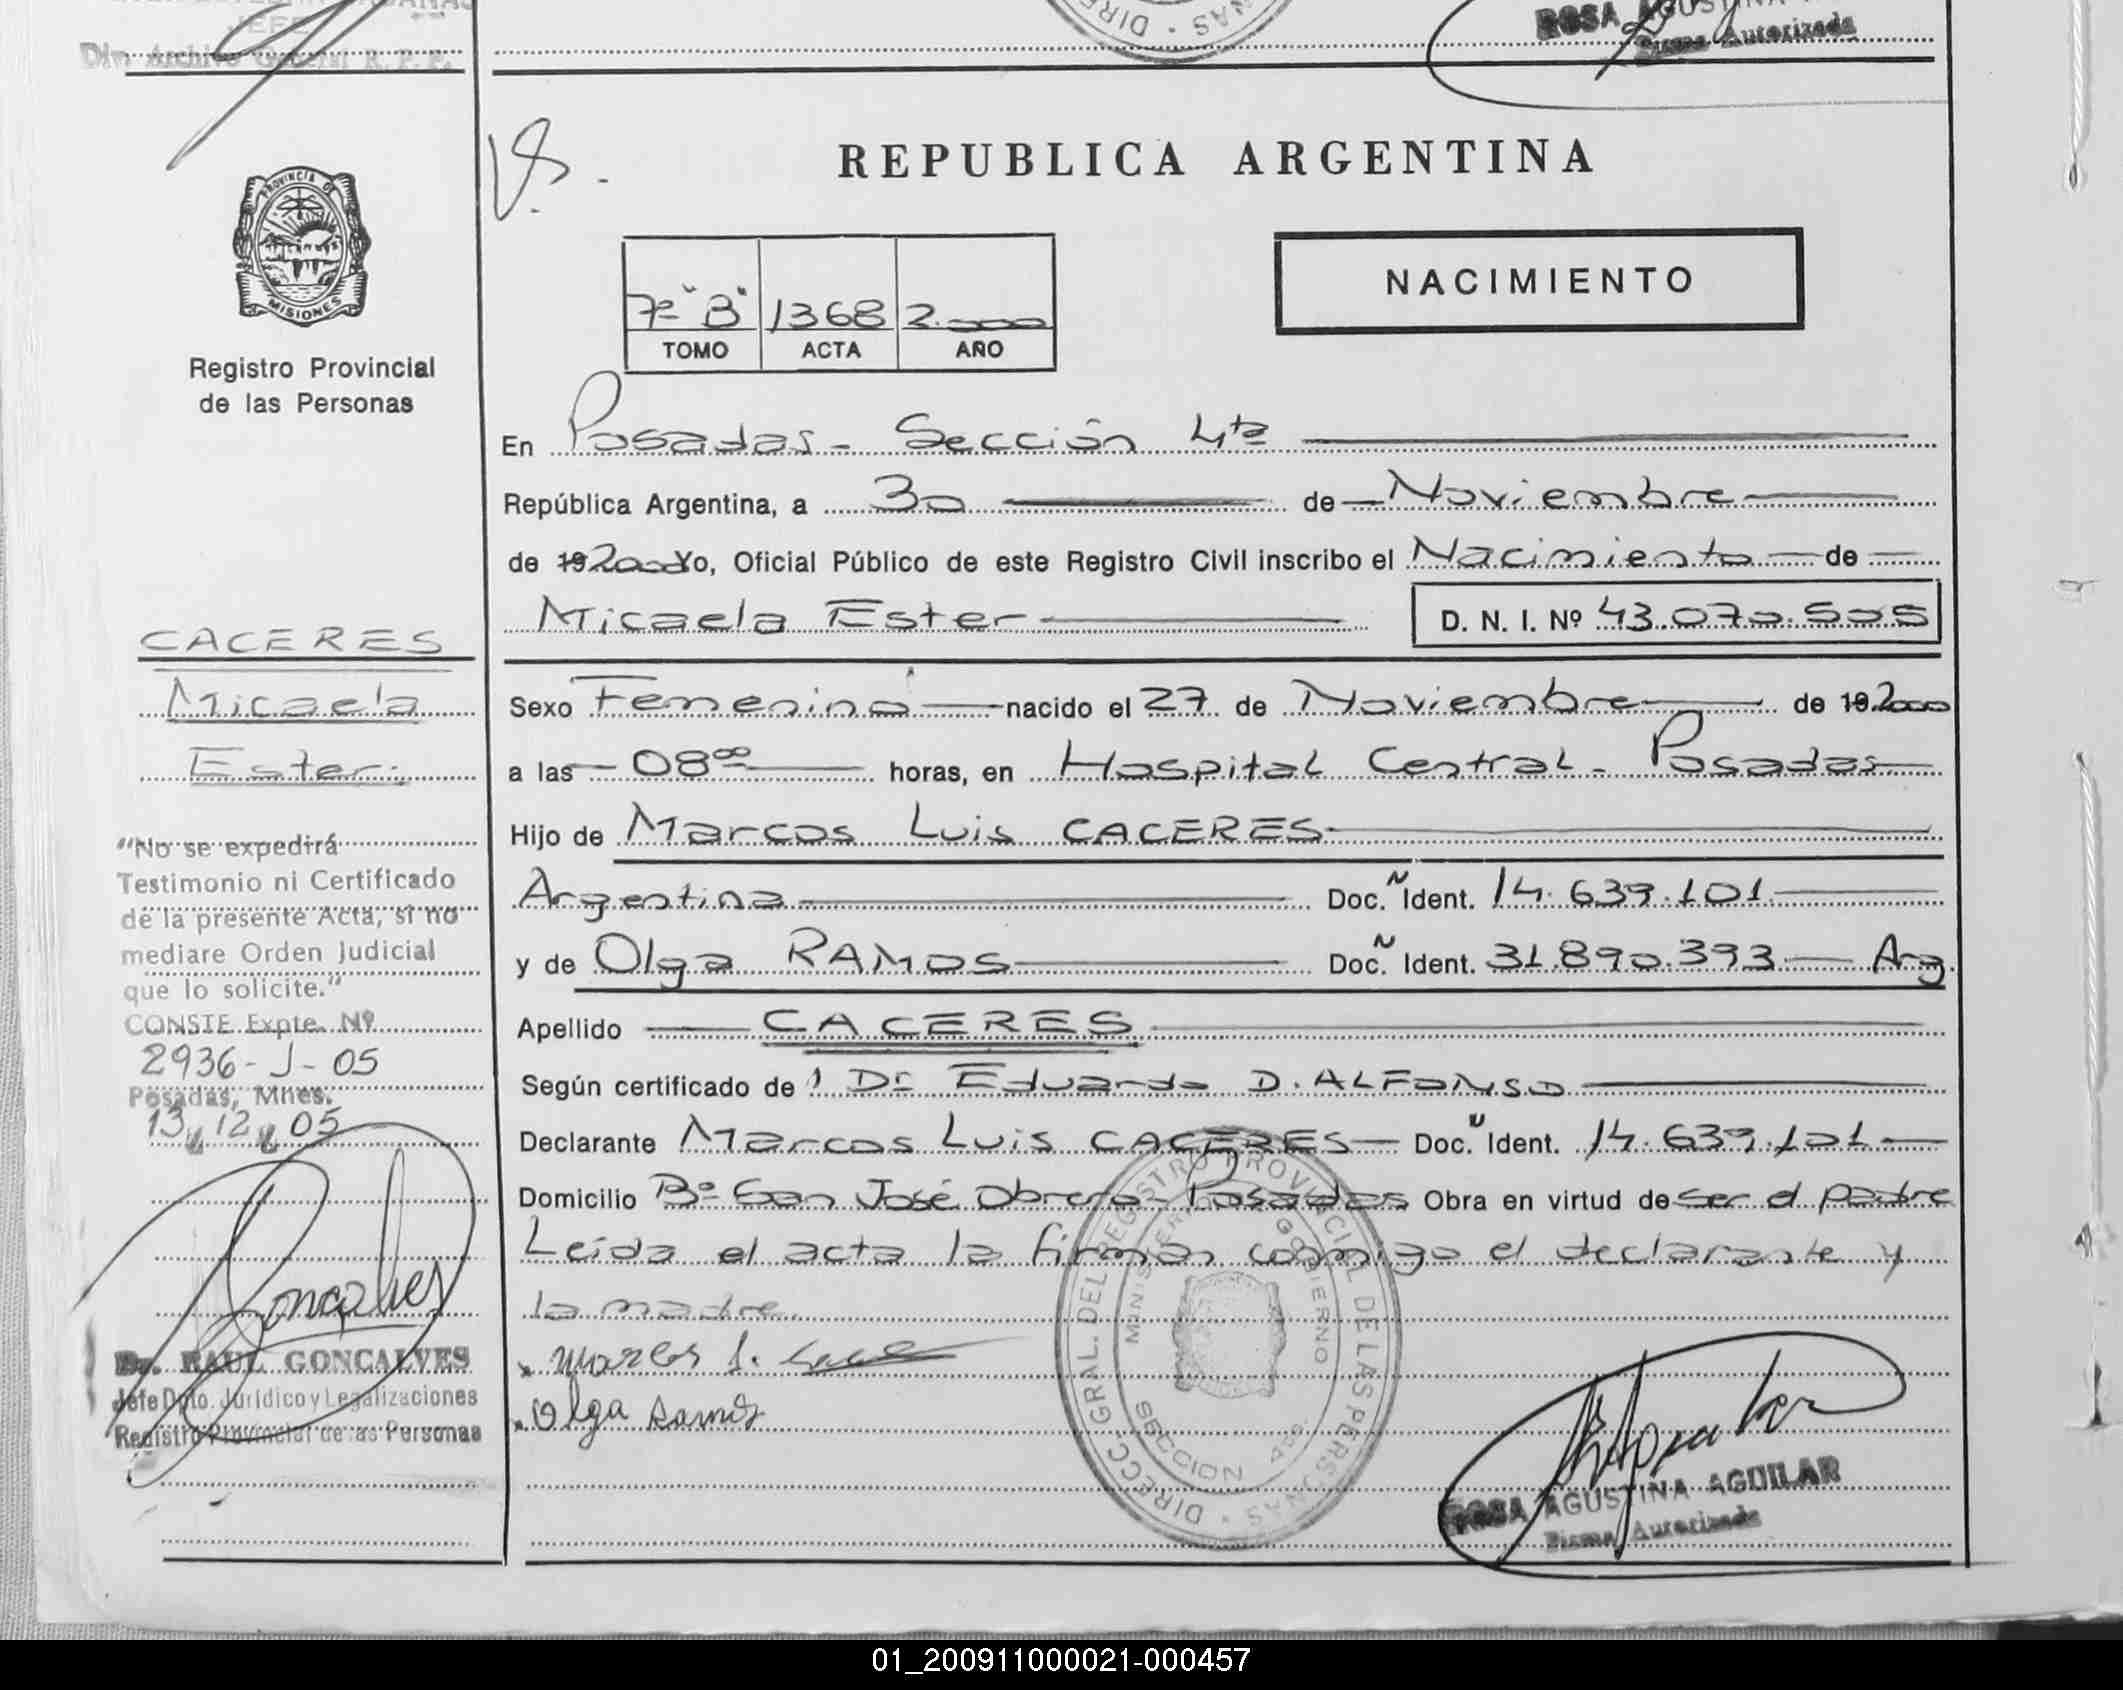 JEFE
Dir. Archivo General R. P. P.
ROSA AGUSTINA
Firma Autorizada
PROVINCIA DE
MISIONES
Registro Provincial
de las Personas
REPUBLICA ARGENTINA
NACIMIENTO
7º "B" 1368 2.000
TOMO ACTA AÑO
En Posadas - Sección 4ta
República Argentina, a 30 de Noviembre
de 19 2000 Yo, Oficial Público de este Registro Civil inscribo el Nacimiento de
Micaela Ester D. N. I. Nº 43.070.505
CACERES
Micaela
Ester.
Sexo Femenino nacido el 27 de Noviembre de 19 2000
a las 08⁰⁰ horas, en Hospital Central - Posadas
Hijo de Marcos Luis CACERES
Argentina Doc. N Ident. 14.639.101
y de Olga RAMOS Doc. N Ident. 31.890.393 Arg.
Apellido CACERES
Según certificado de l Dr Eduardo D. ALFONSO
Declarante Marcos Luis CACERES Doc. N Ident. 14.639.101
Domicilio Bº San José Obrero - Posadas Obra en virtud de ser el padre
Leída el acta la firman conmigo el declarante y
la madre.
Marcos L.
Olga Ramos
"No se expedirá
Testimonio ni Certificado
de la presente Acta, si no
mediare Orden Judicial
que lo solicite."
CONSTE Expte. Nº
2936 - J - 05
Posadas, Mnes.
13 12 05
Gonçalves
Dr. RAUL GONCALVES
Jefe Dpto. Jurídico y Legalizaciones
Registro Provincial de las Personas
DIRECC. GRAL. DEL REGISTRO PROVINCIAL DE LAS PERSONAS
MINISTERIO GOBIERNO
SECCION 4ta.
ROSA AGUSTINA AGUILAR
Firma Autorizada
01_200911000021-000457